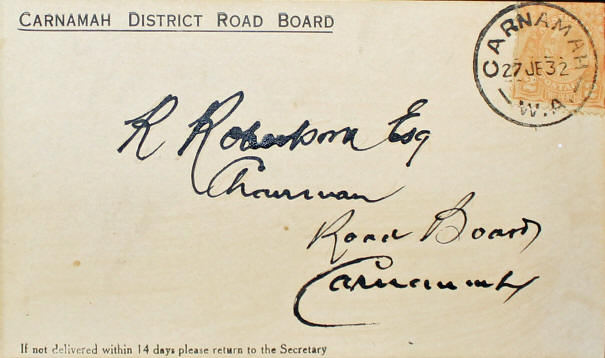 CARNAMAH DISTRICT ROAD BOARD
CARNAMAH
27 JE 32
W.A
R Robertson Esq
Chairman
Road Board
Carnamah
If not delivered within 14 days please return to the Secretary